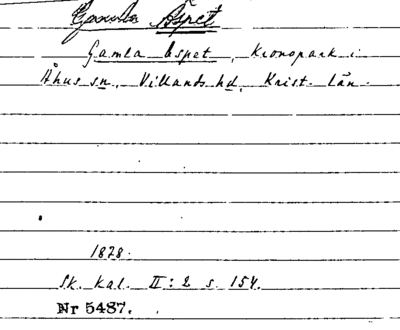 Gamla Åspet
Gamla Åspet, Kronopark i
Åhus sn., Villands hd, Krist. län.
1828.
Sk. kal. II: 2 s. 154.
Nr 5487.